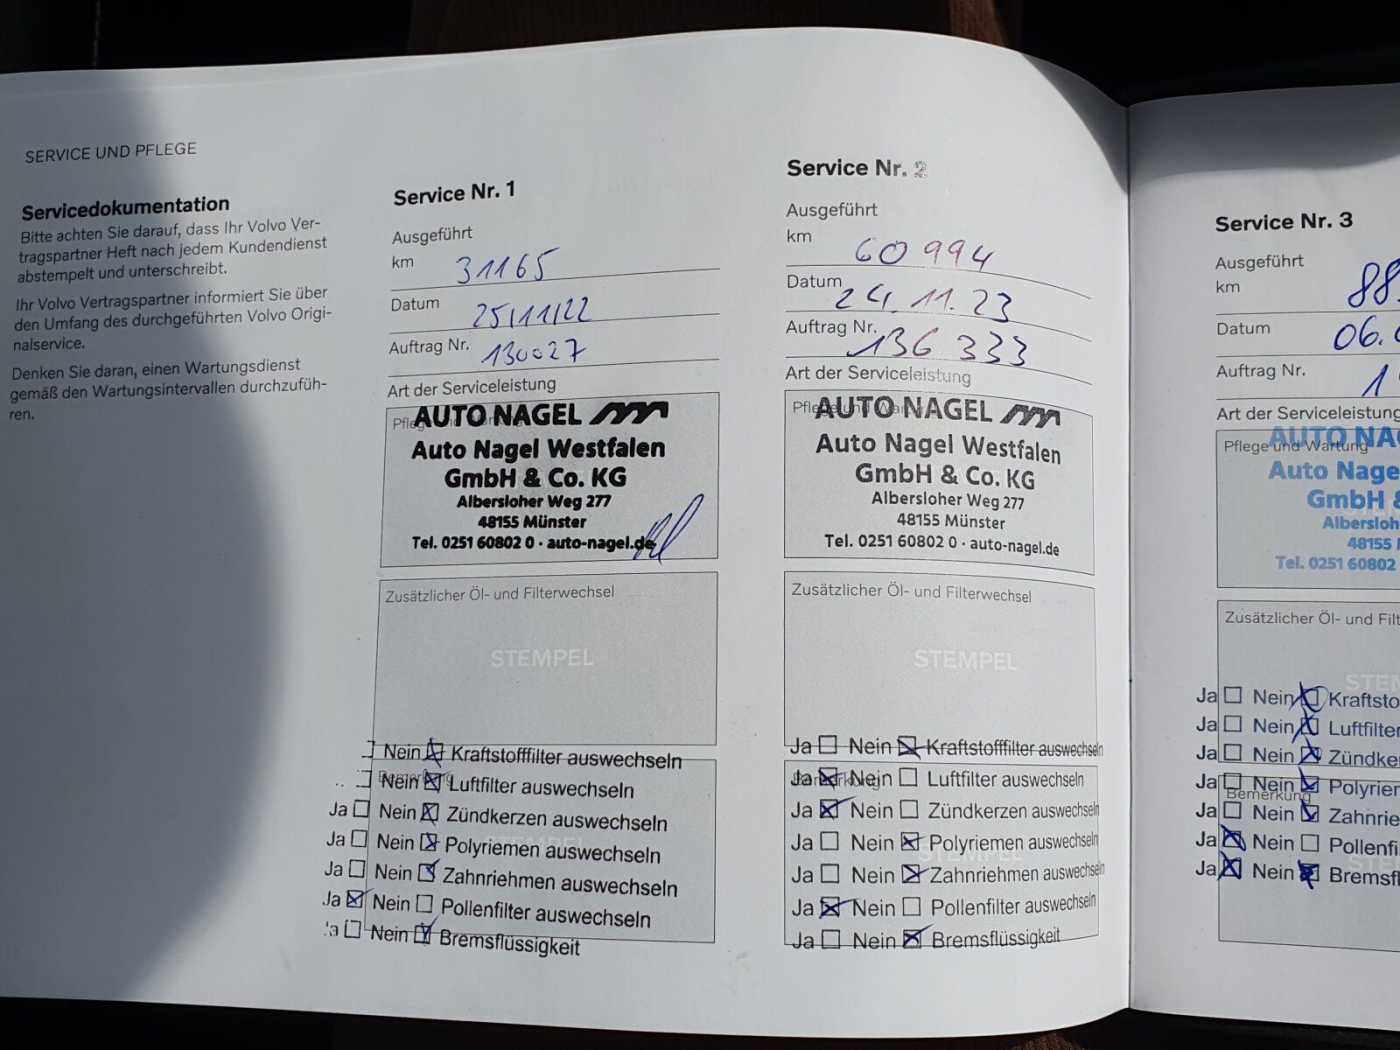 SERVICE UND PFLEGE
Servicedokumentation
Bitte achten Sie darauf, dass Ihr Volvo Ver-
tragspartner Heft nach jedem Kundendienst
abstempelt und unterschreibt.
Ihr Volvo Vertragspartner informiert Sie über
den Umfang des durchgeführten Volvo Origi-
nalservice.
Denken Sie daran, einen Wartungsdienst
gemäß den Wartungsintervallen durchzufüh-
ren.
Service Nr. 1
Ausgeführt
km 31165
Datum 25/11/22
Auftrag Nr. 130027
Art der Serviceleistung
AUTO NAGEL
Auto Nagel Westfalen
GmbH & Co. KG
Albersloher Weg 277
48155 Münster
Tel. 0251 60802 0 · auto-nagel.de
Zusätzlicher Öl- und Filterwechsel
STEMPEL
Nein Kraftstofffilter auswechseln
Nein Luftfilter auswechseln
Ja Nein Zündkerzen auswechseln
Ja Nein Polyriemen auswechseln
Ja Nein Zahnriehmen auswechseln
Ja Nein Pollenfilter auswechseln
Nein Bremsflüssigkeit
Service Nr. 2
Ausgeführt
km 60 994
Datum 24.11.23
Auftrag Nr. 136 333
Art der Serviceleistung
Pflege und Wartung
AUTO NAGEL
Auto Nagel Westfalen
GmbH & Co. KG
Albersloher Weg 277
48155 Münster
Tel. 0251 60802 0 · auto-nagel.de
Zusätzlicher Öl- und Filterwechsel
STEMPEL
Ja Nein Kraftstofffilter auswechseln
Ja Nein Luftfilter auswechseln
Bemerkung
Ja Nein Zündkerzen auswechseln
Ja Nein Polyriemen auswechseln
STEMPEL
Ja Nein Zahnriehmen auswechseln
Ja Nein Pollenfilter auswechseln
Ja Nein Bremsflüssigkeit
Service Nr. 3
Ausgeführt
km 88
Datum 06.
Auftrag Nr. 1
Art der Serviceleistung
Pflege und Wartung
AUTO NA
Auto Nage
GmbH &
Albersloh
48155
Tel. 0251 60802
Zusätzlicher Öl- und Filt
STEM
Ja Nein Kraftsto
Ja Nein Luftfilter
Ja Nein Zündke
Ja Nein Polyrier
Bemerkung
Ja Nein Zahnrie
Ja Nein Pollenfi
Ja Nein Bremsfl